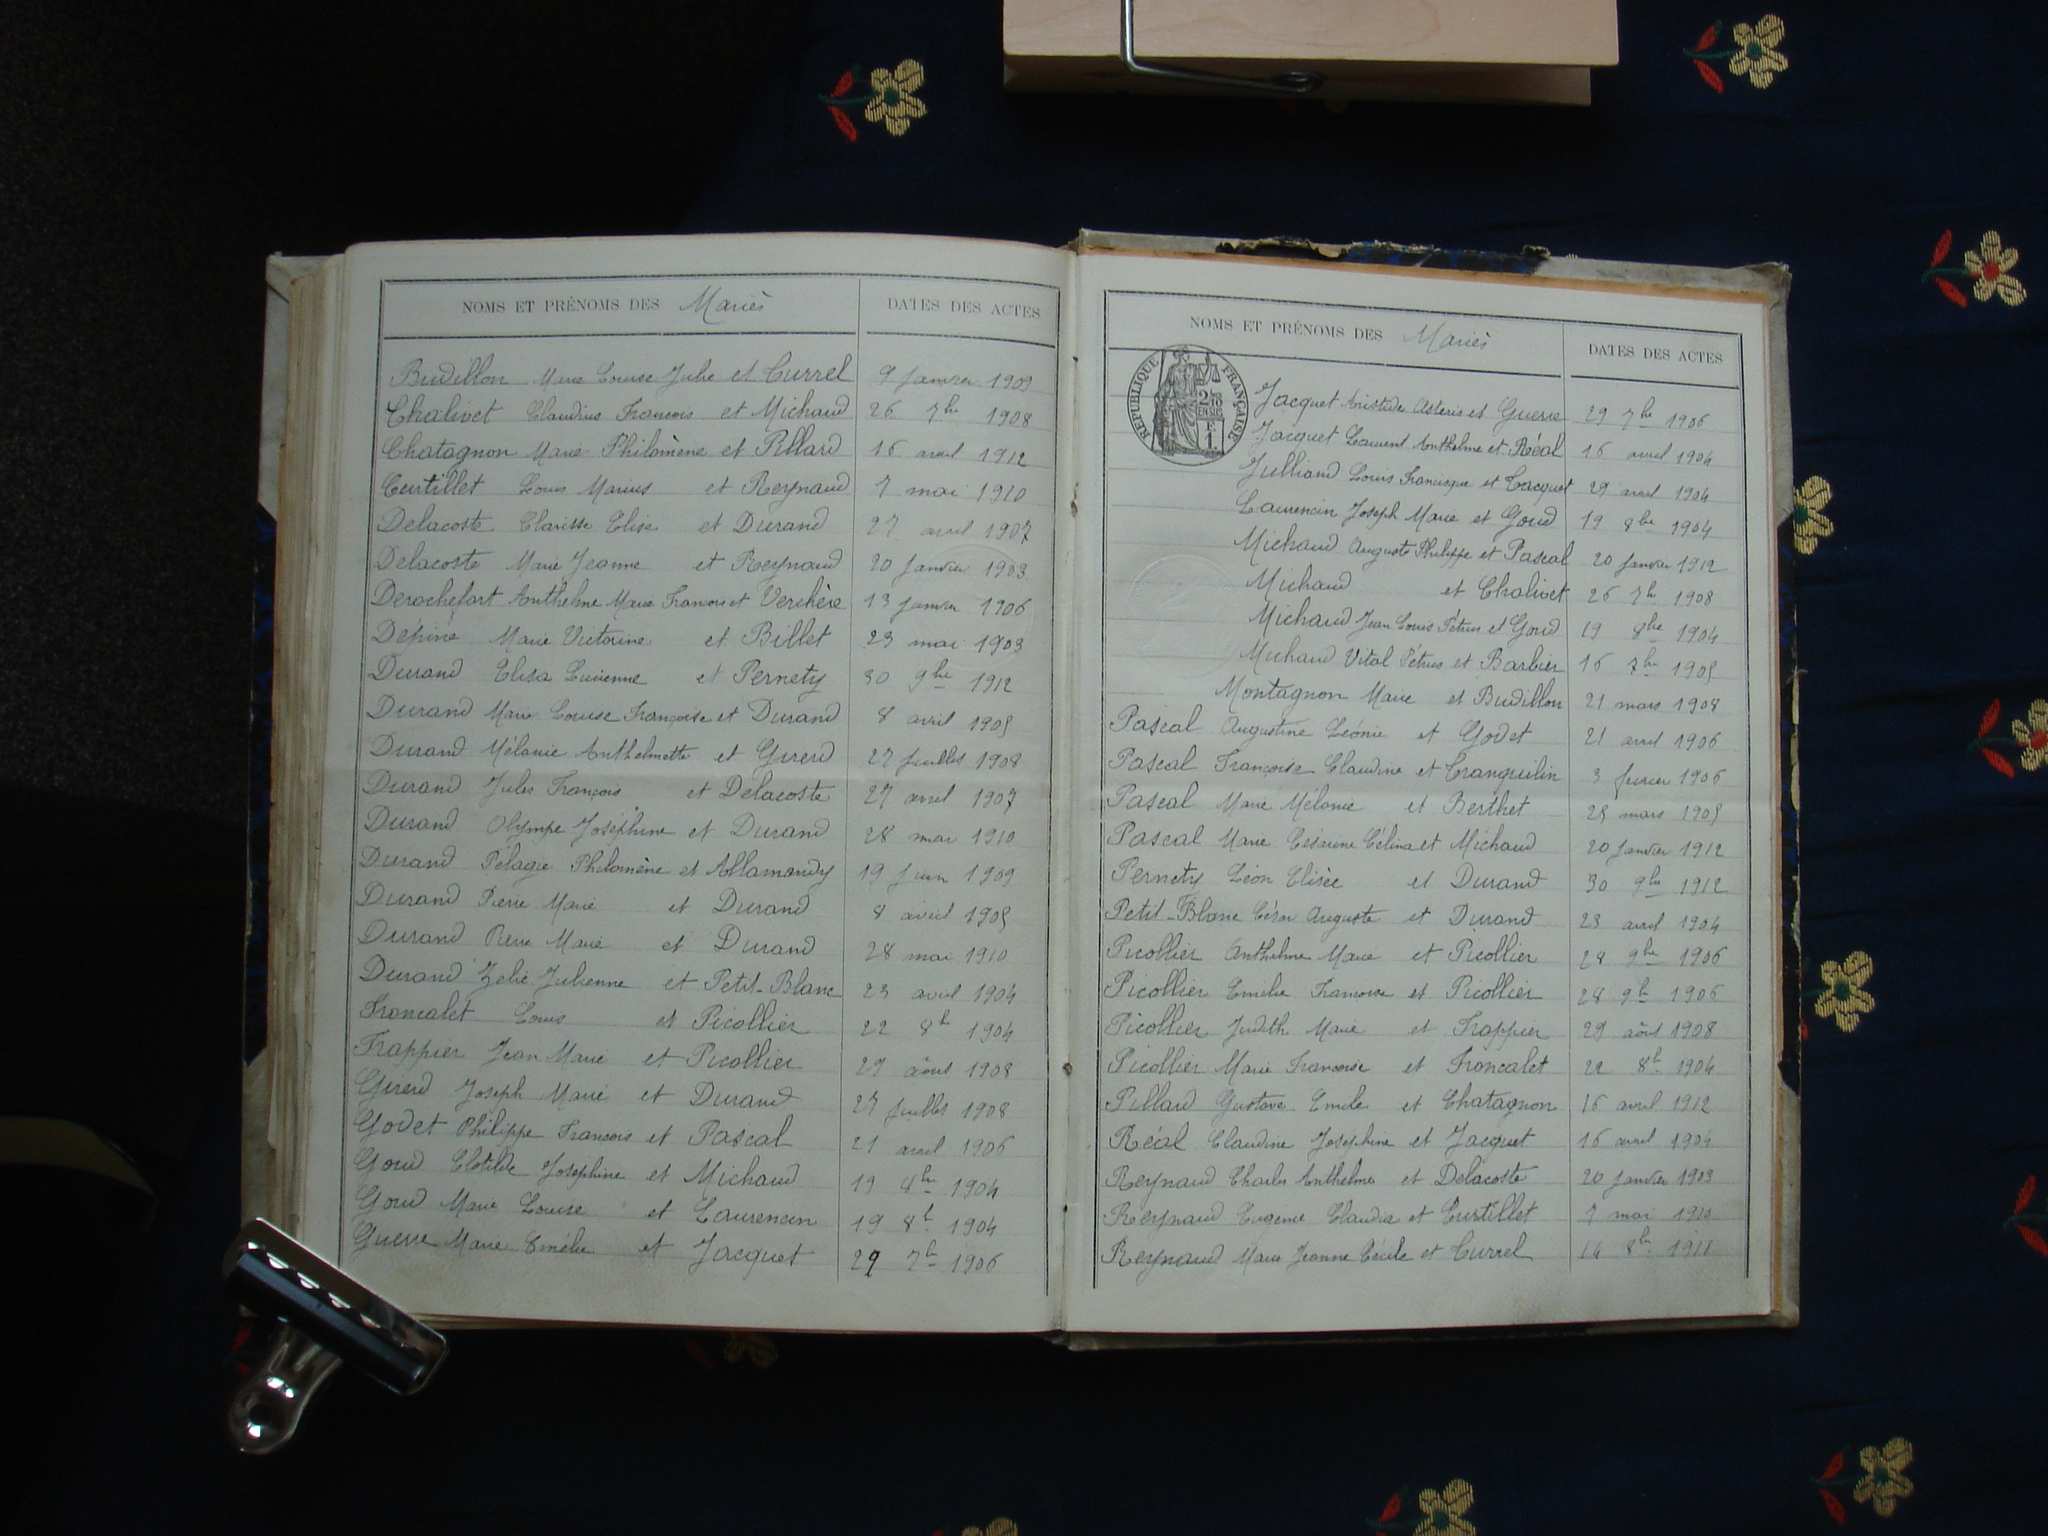 NOMS ET PRÉNOMS DES Mariés DATES DES ACTES
Budillon Marie Louise Julie et Currel 9 Janvier 1909
Chalivet Claudius François et Michaud 26 7bre 1908
Chatagnon Marie Philomène et Pillard 16 avril 1912
Curtillet Louis Marius et Reynaud 7 mai 1910
Delacoste Clarisse Elise et Durand 27 avril 1907
Delacoste Marie Jeanne et Reynaud 20 Janvier 1903
Derochefort Anthelme Marie François et Verchère 13 Janvier 1906
Dépine Marie Victorine et Billet 23 mai 1903
Durand Elisa Lucienne et Pernety 30 9bre 1912
Durand Marie Louise Françoise et Durand 8 avril 1905
Durand Mélanie Anthelmette et Girerd 27 Juillet 1908
Durand Jules François et Delacoste 27 avril 1907
Durand Olympe Joséphine et Durand 28 mai 1910
Durand Pélagie Philomène et Allamandy 19 Juin 1909
Durand Pierre Marie et Durand 8 avril 1905
Durand Pierre Marie et Durand 28 mai 1910
Durand Zélie Julienne et Petit-Blanc 23 avril 1904
Froncalet Louis et Picollier 22 8b 1904
Frappier Jean Marie et Picollier 29 août 1908
Girerd Joseph Marie et Durand 27 Juillet 1908
Godet Philippe François et Pascal 21 avril 1906
Goud Clotilde Joséphine et Michaud 19 8bre 1904
Goud Marie Louise et Laurencin 19 8b 1904
Guerre Marie Emélie et Jacquet 29 7b 1906
NOMS ET PRÉNOMS DES Mariés DATES DES ACTES
RÉPUBLIQUE FRANÇAISE
2/10 EN SUS
F
1.
Jacquet Aristide Asteris et Guerre 29 7bre 1906
Jacquet Laurent Anthelme et Réal 16 avril 1904
Julliand Louis Francisque et Cacquet 29 avril 1904
Laurencin Joseph Marie et Goud 19 8bre 1904
Michaud Auguste Philippe et Pascal 20 Janvier 1912
Michaud et Chalivet 26 7bre 1908
Michaud Jean Louis Pétrus et Goud 19 8bre 1904
Michaud Vital Pétrus et Barbier 16 7bre 1905
Montagnon Marie et Budillon 21 mars 1908
Pascal Augustine Léonie et Godet 21 avril 1906
Pascal Françoise Claudine et Tranquilin 3 février 1906
Pascal Marie Mélanie et Berthet 25 mars 1905
Pascal Marie Césarine Célina et Michaud 20 Janvier 1912
Pernety Léon Elisée et Durand 30 9bre 1912
Petit-Blanc César Auguste et Durand 23 avril 1904
Picollier Anthelme Marie et Picollier 28 9bre 1906
Picollier Emélie Françoise et Picollier 28 9b 1906
Picollier Judith Marie et Frappier 29 août 1908
Picollier Marie Françoise et Froncalet 22 8b 1904
Pillard Gustave Emile et Chatagnon 16 avril 1912
Réal Claudine Joséphine et Jacquet 16 avril 1904
Reynaud Charles Anthelme et Delacoste 20 Janvier 1903
Reynaud Eugénie Claudia et Curtillet 7 mai 1910
Reynaud Marie Jeanne Cécile et Currel 14 8bre 1911